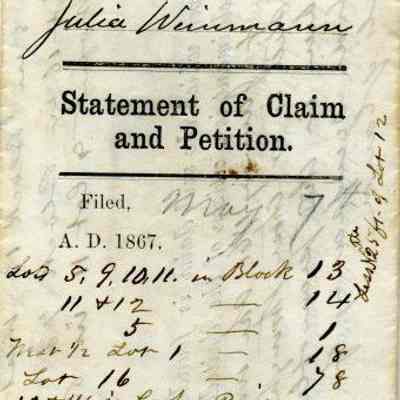 Julia Weinmann
Statement of Claim
and Petition.
Filed, May 7th
A. D. 1867.
Lots 5, 9, 10, 11. in Block 13
11 & 12 — 14
5 — 1
West 1/2 Lot 1 — 18
Lot 16 — 78
Less N 25 ft. of Lot 12